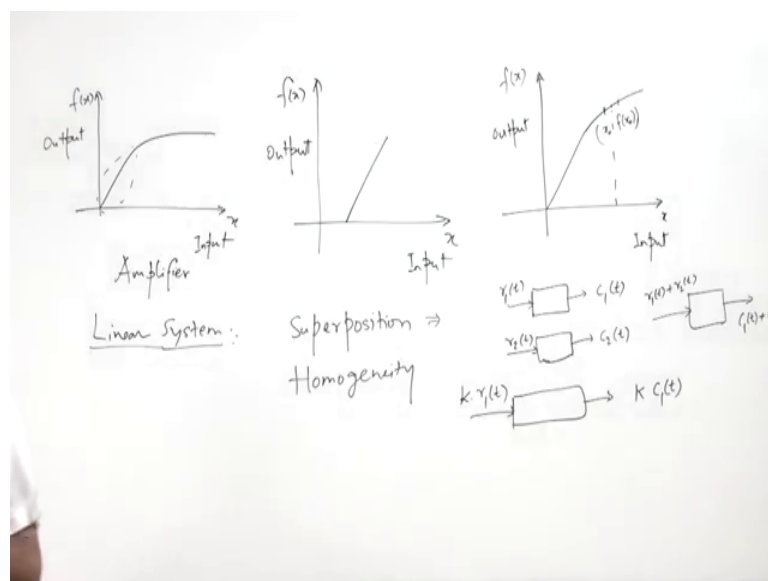 f(x)
Output
x
Input
Amplifier
f(x)
Output
x
Input
f(x)
Output
(x₀, f(x₀))
x
Input
Linear System:
Superposition ⇒
Homogeneity
r₁(t)
C₁(t)
r₂(t)
C₂(t)
r₁(t)+r₂(t)
C₁(t)+
K.r₁(t)
K C₁(t)